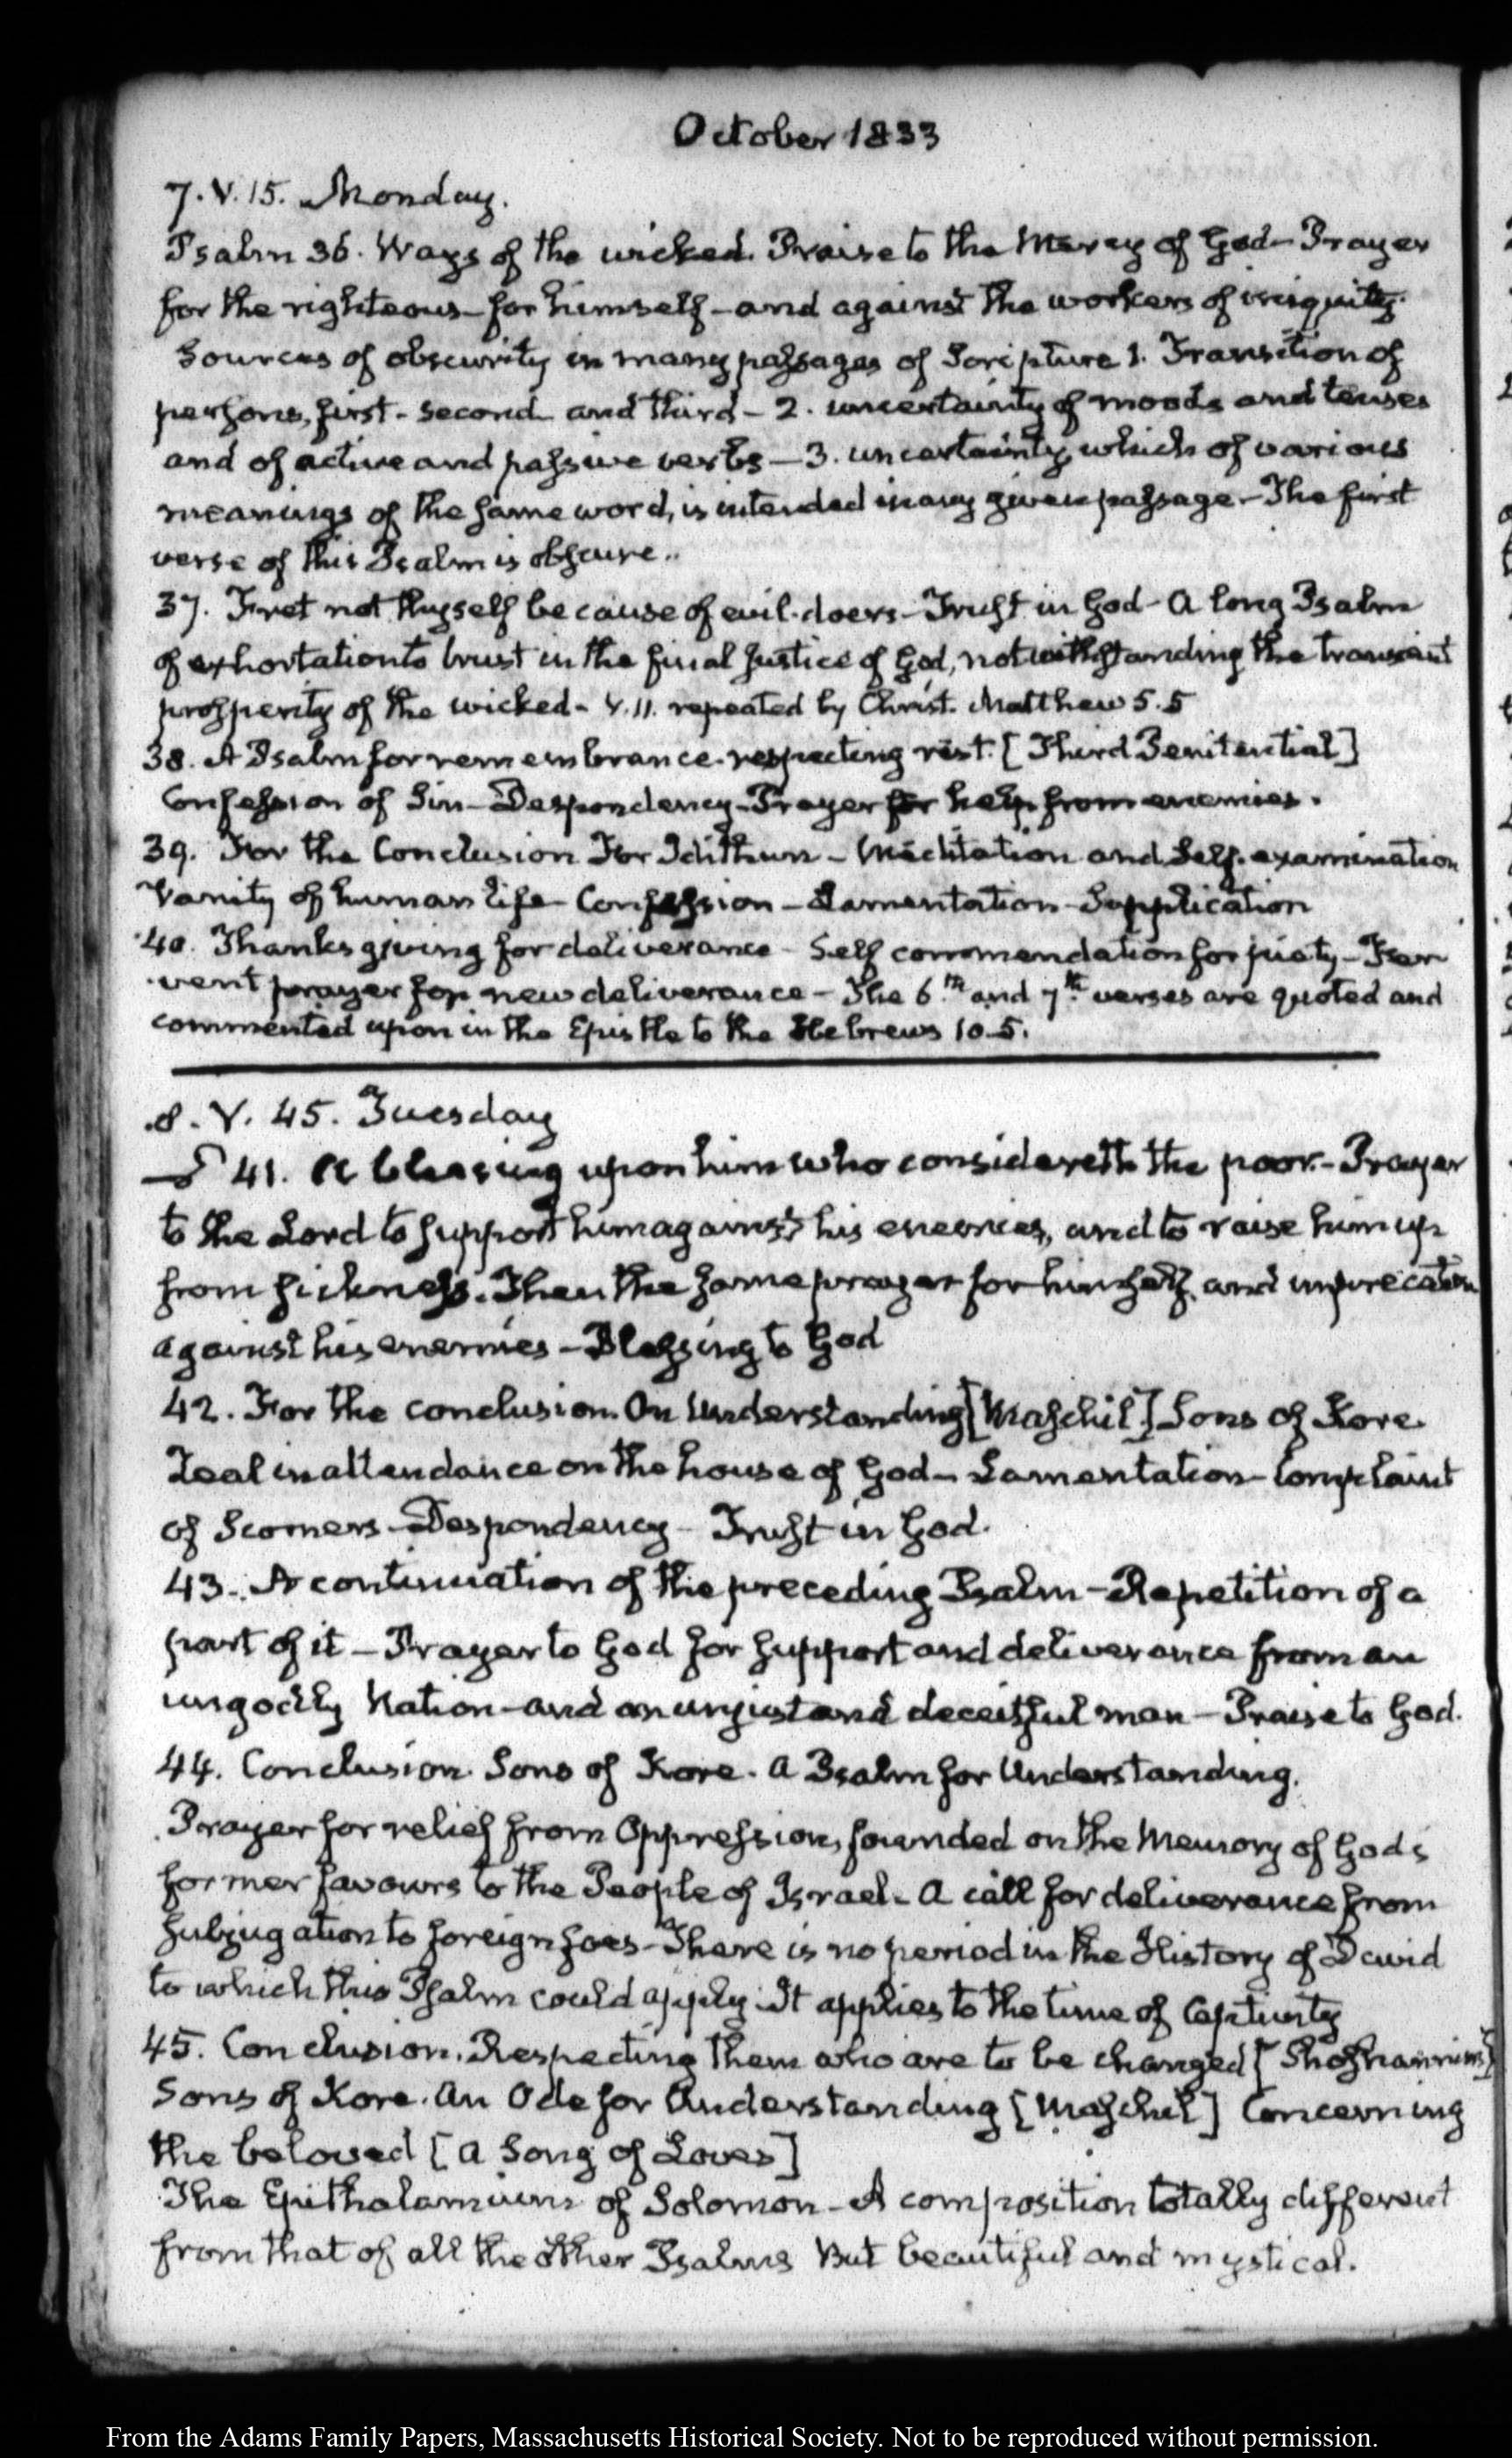 October 1833
7. V. 15. Monday.
Psalm 36. Ways of the wicked. Praise to the Mercy of God - Prayer
for the righteous - for himself - and against the workers of iniquity.
Sources of obscurity in many passages of Scripture 1. Transition of
persons, first - second and third - 2. uncertainty of moods and tenses
and of active and passive verbs - 3. uncertainty, which of various
meanings of the same word, is intended in any given passage - The first
verse of this Psalm is obscure..
37. Fret not thyself because of evil-doers - Trust in God - A long Psalm
of exhortation to trust in the final justice of God, notwithstanding the transient
prosperity of the wicked - V. 11. repeated by Christ. Matthew 5.5
38. A Psalm for remembrance. respecting rest. [Third Penitential]
Confession of Sin - Despondency - Prayer for help from enemies.
39. For the Conclusion For Idithun - Meditation and Self-examination
Vanity of human life - Confession - Lamentation - Supplication
40. Thanksgiving for deliverance - Self commendation for piety - Fer
vent prayer for new deliverance - The 6th and 7th verses are quoted and
commented upon in the Epistle to the Hebrews 10.5.
8. V. 45. Tuesday
41. A blessing upon him who considereth the poor. - Prayer
to the Lord to support him against his enemies, and to raise him up
from sickness. Then the same prayer for himself, and imprecation
against his enemies - Blessing to God
42. For the conclusion. On Understanding [Maschil] Sons of Kore.
Zeal in attendance on the house of God - Lamentation - Complaint
of Scorners - Despondency - Trust in God.
43. A continuation of the preceding Psalm - Repetition of a
part of it - Prayer to God for support and deliverance from an
ungodly Nation - and an unjust and deceitful man - Praise to God.
44. Conclusion. Sons of Kore. A Psalm for Understanding.
Prayer for relief from Oppression, founded on the Memory of Gods
former favours to the People of Israel - A call for deliverance from
subjugation to foreign foes - There is no period in the History of David
to which this Psalm could apply. It applies to the time of Captivity
45. Conclusion. Respecting them who are to be changed [Shoshannim]
Sons of Kore. An Ode for Understanding [Maschil] Concerning
the beloved [A Song of Loves]
The Epithalamium of Solomon - A composition totally different
from that of all the other Psalms But beautiful and mystical.
From the Adams Family Papers, Massachusetts Historical Society. Not to be reproduced without permission.